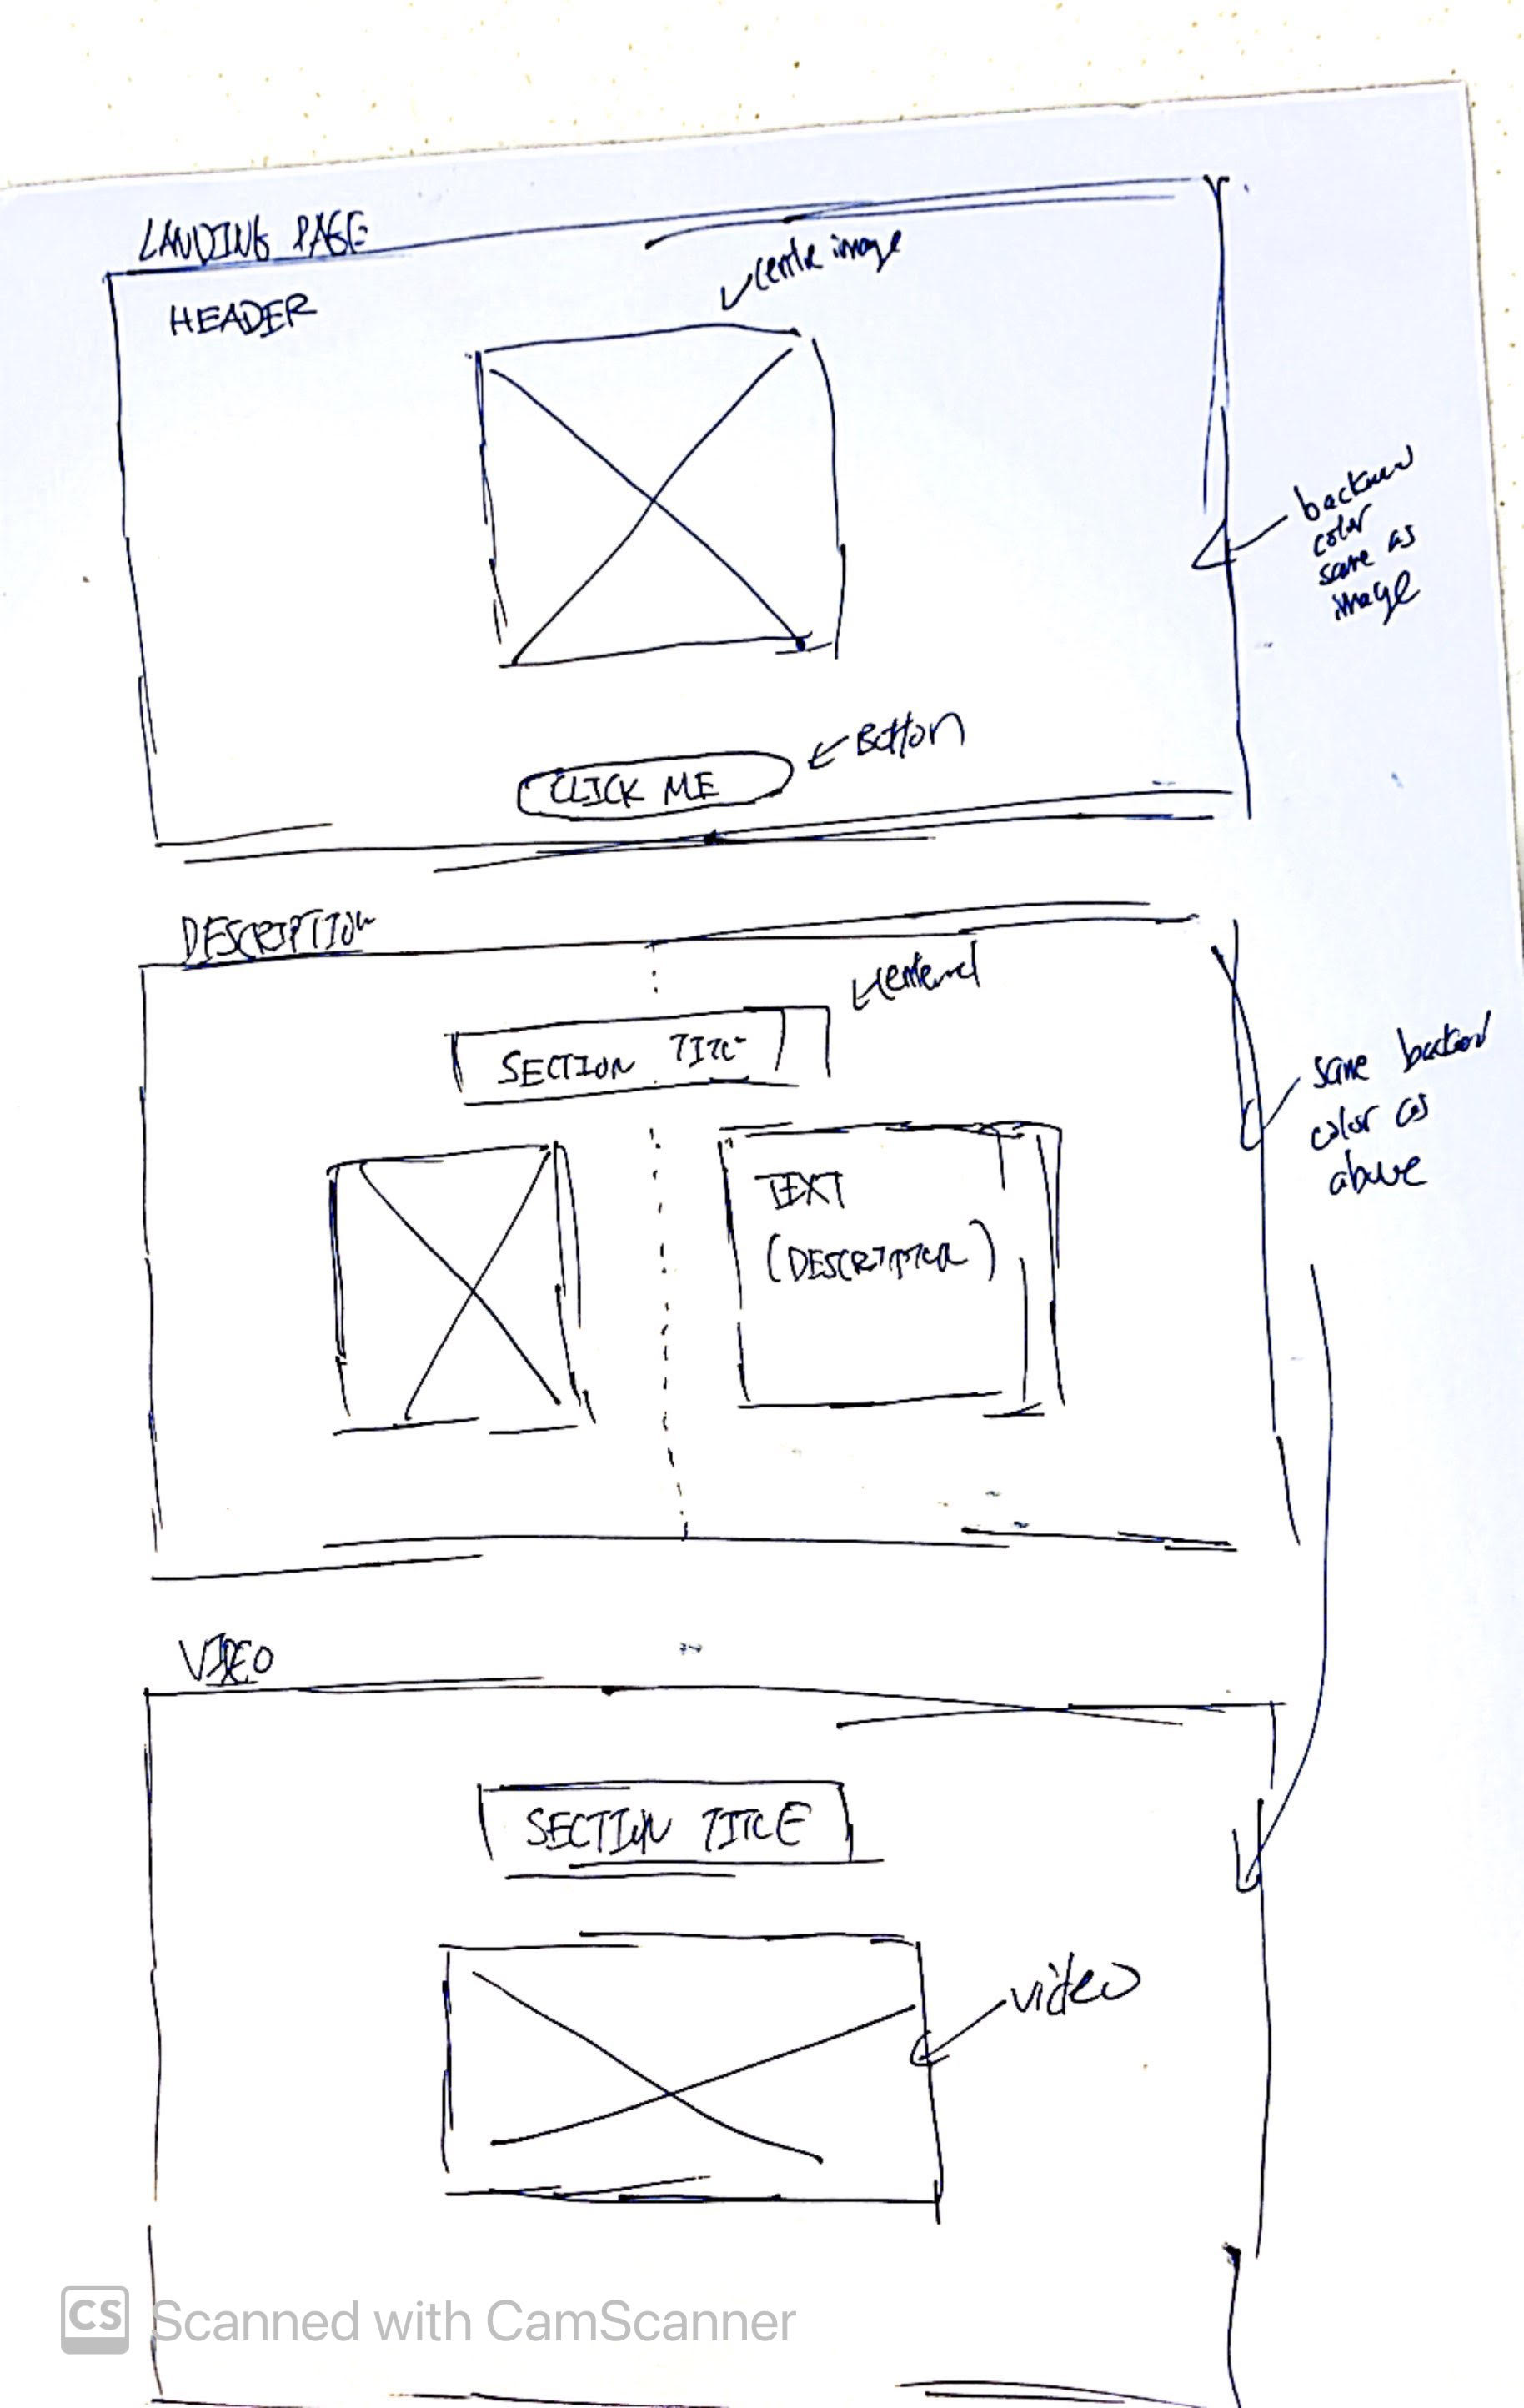 LANDING PAGE
HEADER
centre image
backround
color
same as
image
Button
CLICK ME
DESCRIPTION
centered
SECTION TITLE
same backround
color as
above
TEXT
(DESCRIPTION)
VIDEO
SECTION TITLE
video
CS Scanned with CamScanner